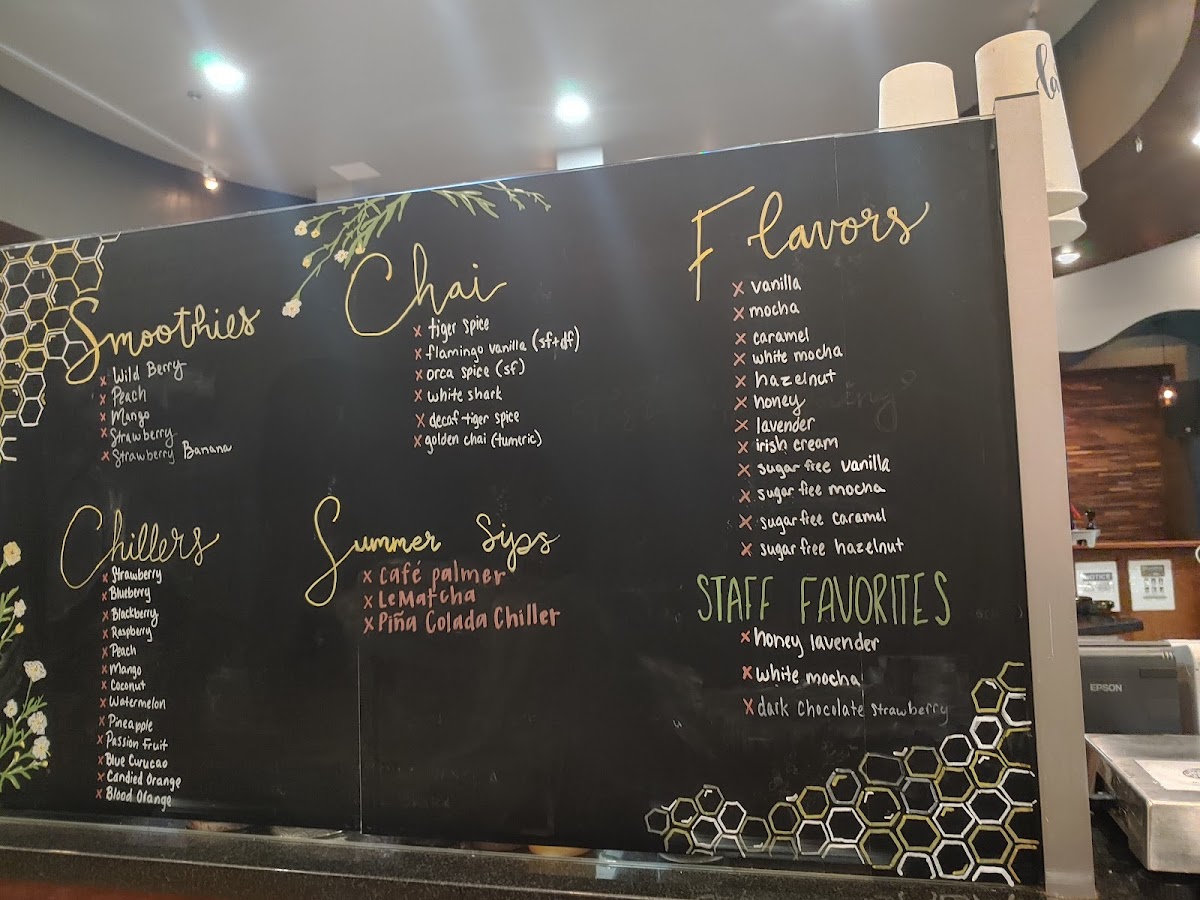 Smoothies
x Wild Berry
x Peach
x Mango
x Strawberry
x Strawberry Banana
Chillers
x Strawberry
x Blueberry
x Blackberry
x Raspberry
x Peach
x Mango
x Coconut
x Watermelon
x Pineapple
x Passion Fruit
x Blue Curucao
x Candied Orange
x Blood Orange
Chai
x tiger spice
x flamingo vanilla (sf+df)
x orca spice (sf)
x white shark
x decaf tiger spice
x golden chai (tumeric)
Summer Sips
x Café palmer
x LeMatcha
x Piña Colada Chiller
Flavors
x vanilla
x mocha
x caramel
x white mocha
x hazelnut
x honey
x lavender
x irish cream
x sugar free vanilla
x sugar free mocha
x sugar free caramel
x sugar free hazelnut
STAFF FAVORITES
x honey lavender
x white mocha
x dark chocolate strawberry
EPSON
NOTICE